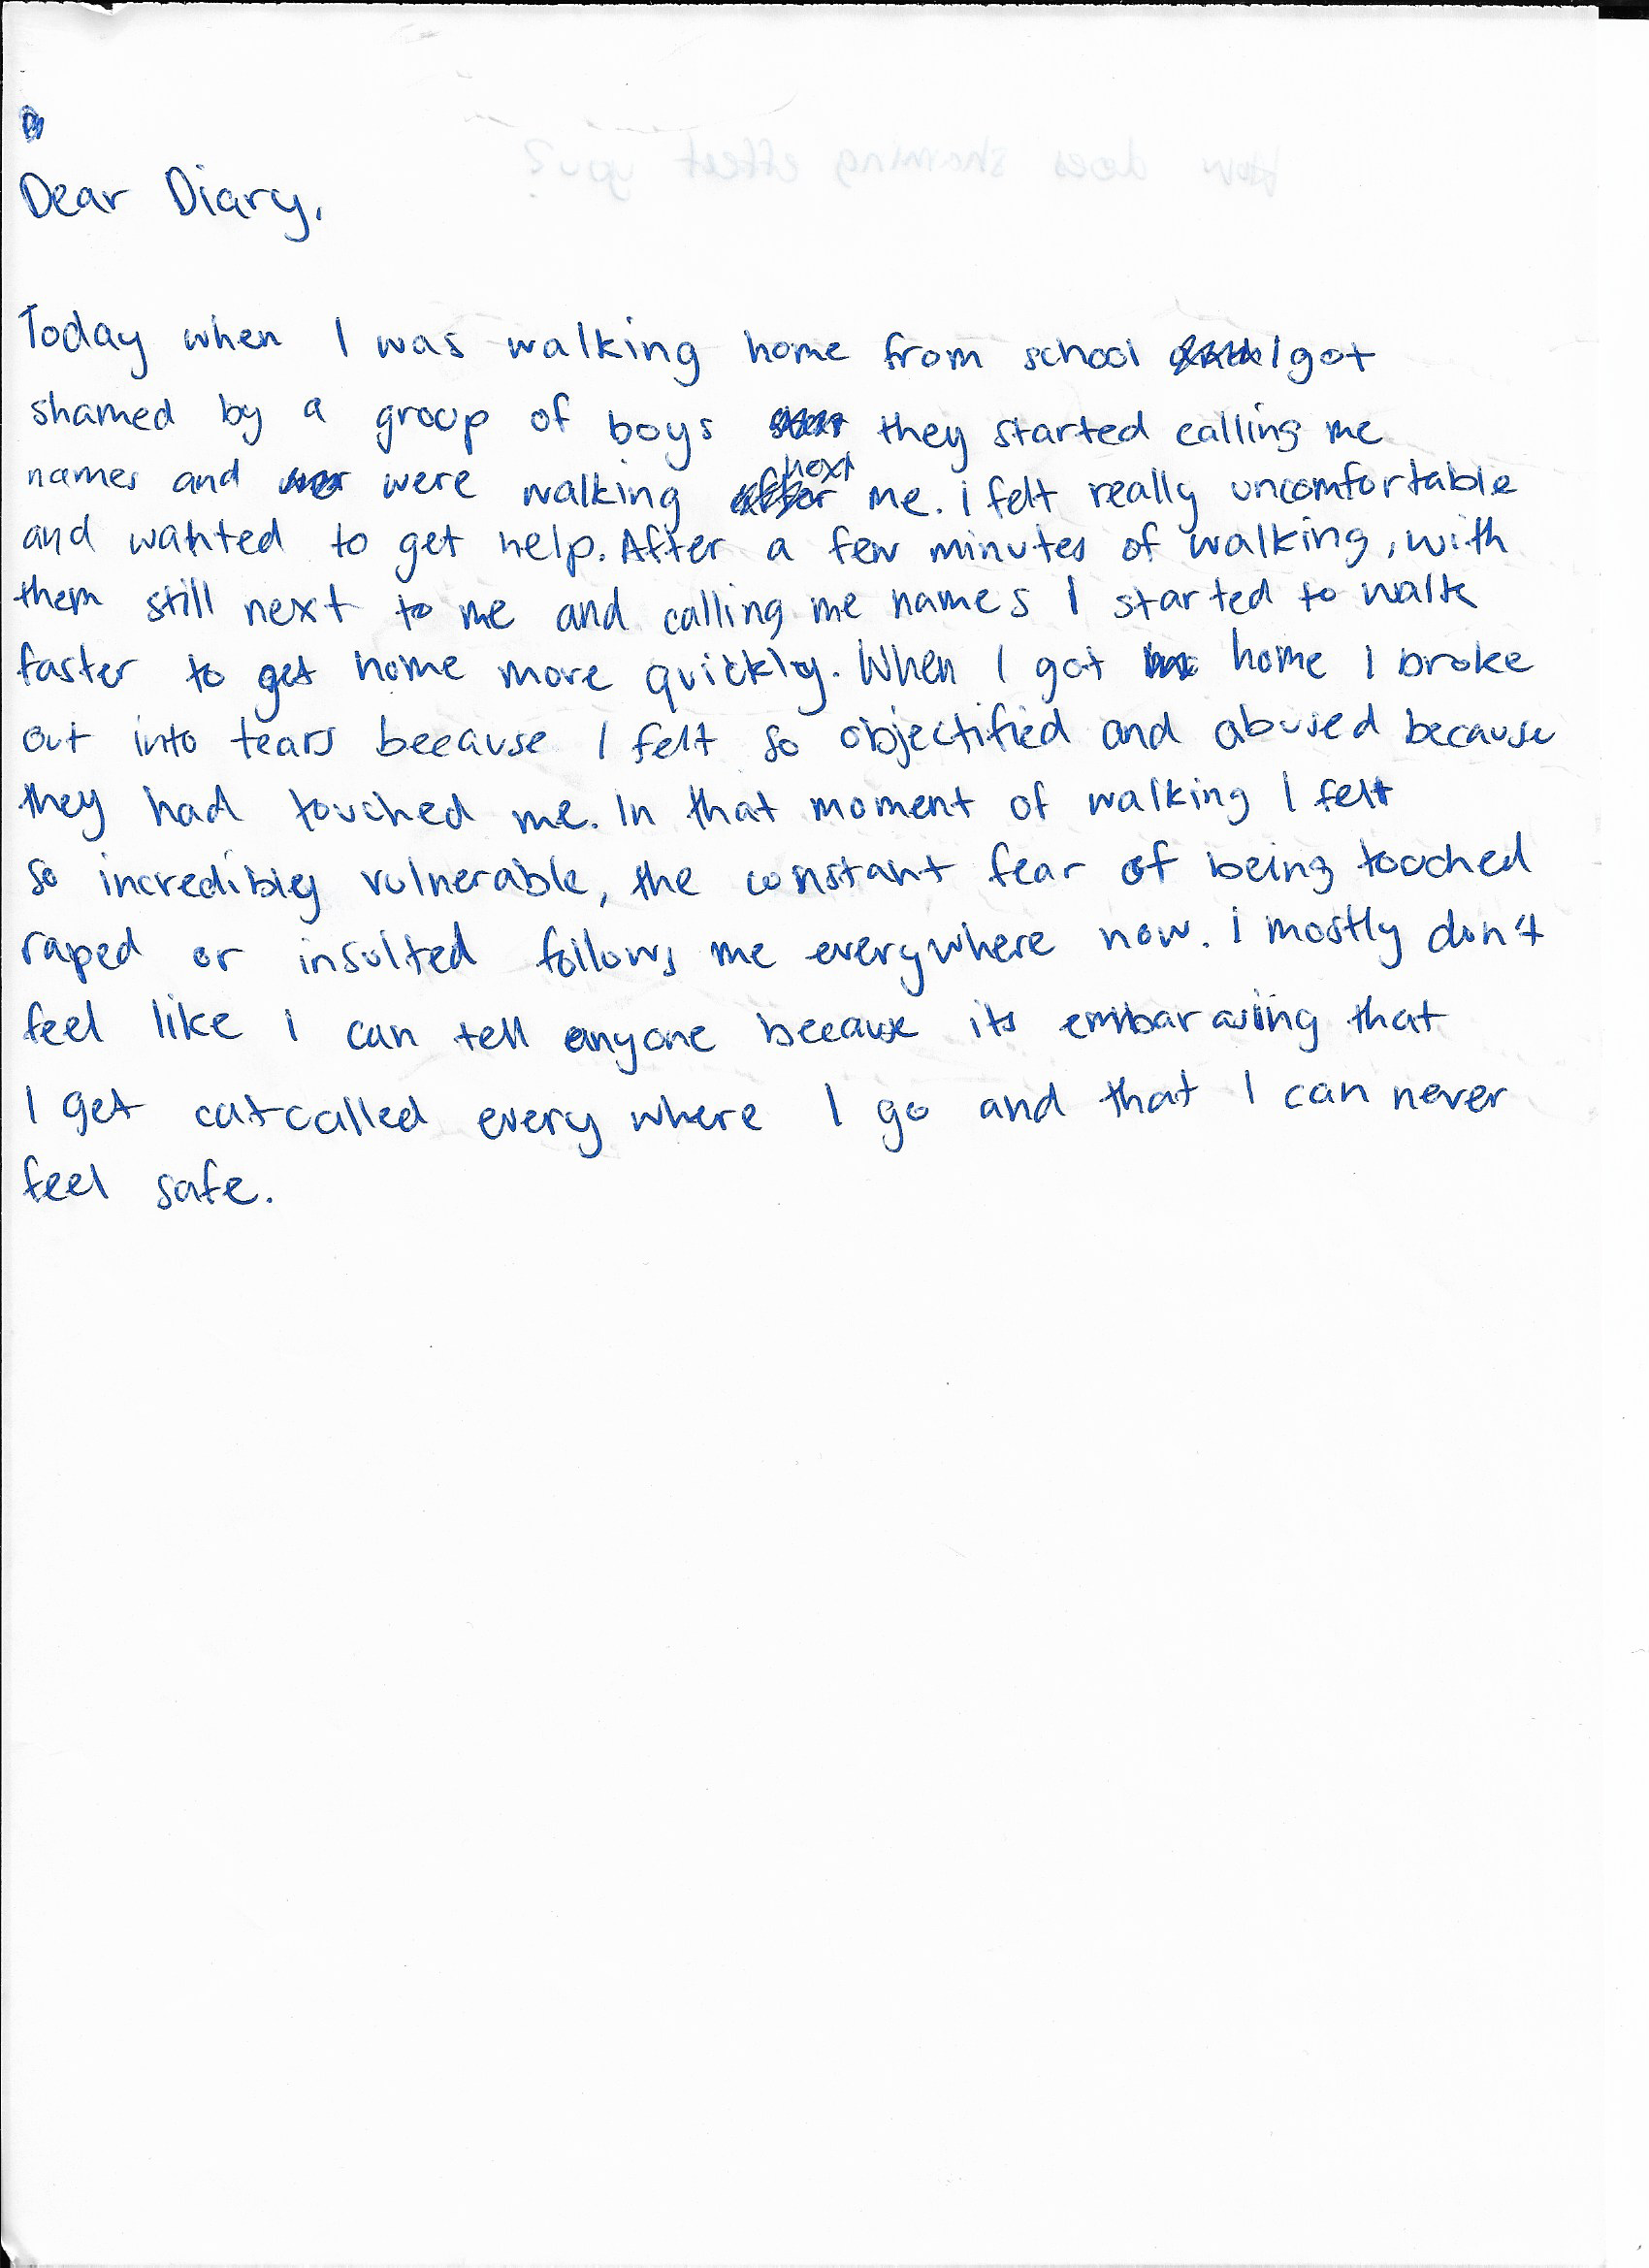 How does shaming effect you?
Dear Diary,
Today when I was walking home from school I got
shamed by a group of boys they started calling me
names and were walking next me. I felt really uncomfortable
and wanted to get help. After a few minutes of walking, with
them still next to me and calling me names I started to walk
faster to get home more quickly. When I got home I broke
out into tears because I felt so objectified and abused because
they had touched me. In that moment of walking I felt
so incredibley vulnerable, the constant fear of being touched
raped or insulted follows me everywhere now. I mostly don't
feel like I can tell anyone because its embarassing that
I get catcalled every where I go and that I can never
feel safe.